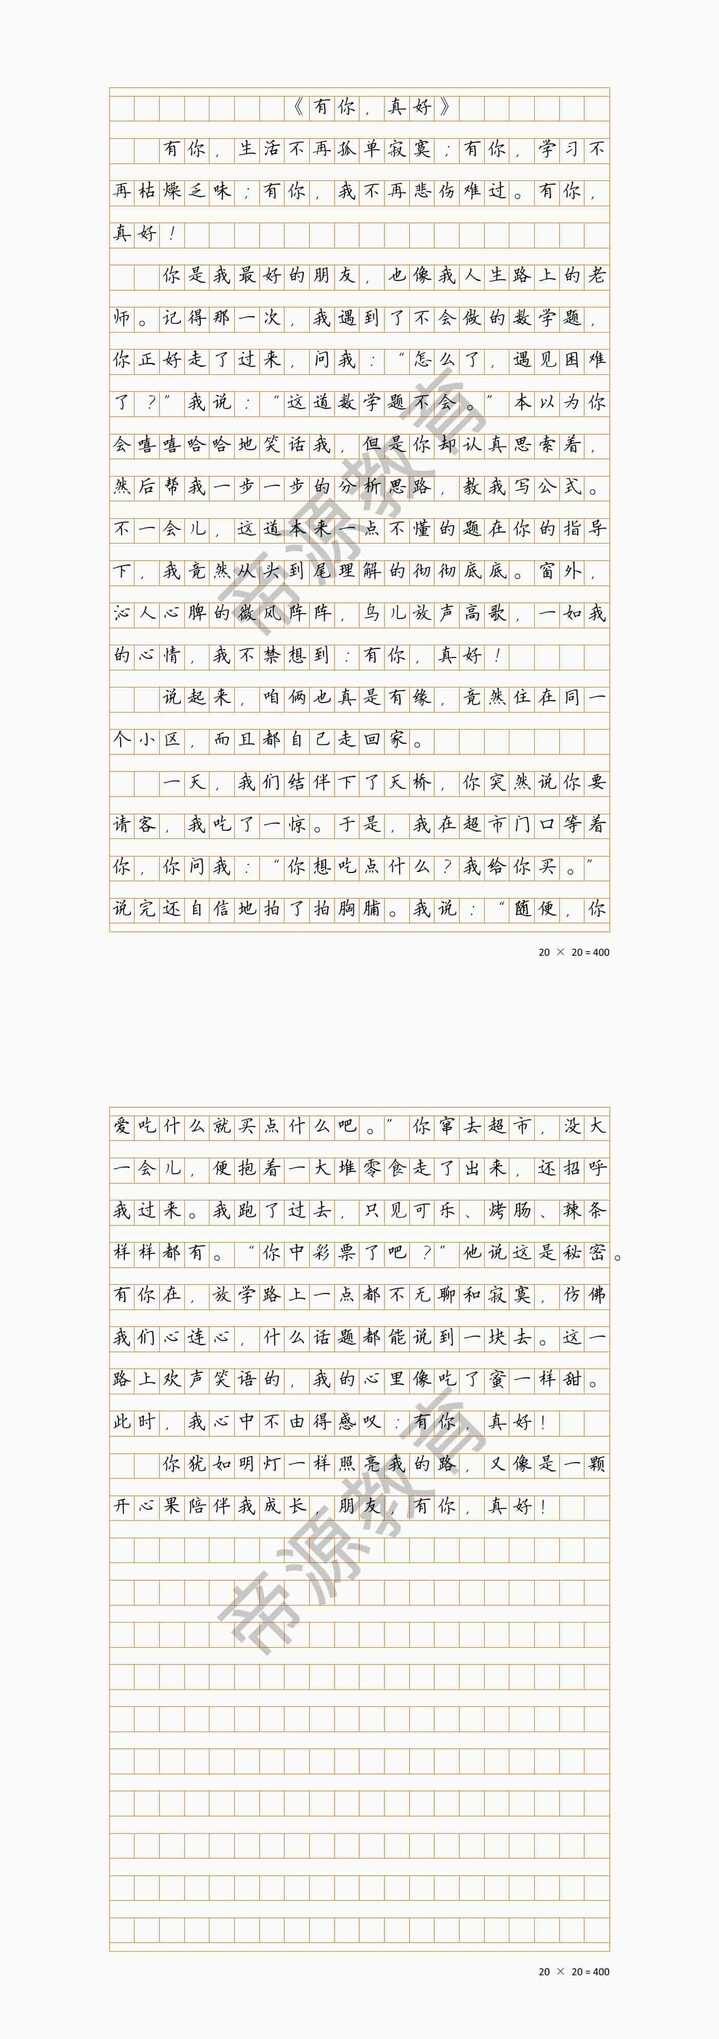 《有你，真好》
有你，生活不再孤单寂寞；有你，学习不
再枯燥乏味；有你，我不再悲伤难过。有你，
真好！
你是我最好的朋友，也像我人生路上的老
师。记得那一次，我遇到了不会做的数学题，
你正好走了过来，问我：“怎么了，遇见困难
了？”我说：“这道数学题不会。”本以为你
会嘻嘻哈哈地笑话我，但是你却认真思索着，
然后帮我一步一步的分析思路，教我写公式。
不一会儿，这道本来一点不懂的题在你的指导
下，我竟然从头到尾理解的彻彻底底。窗外，
沁人心脾的微风阵阵，鸟儿放声高歌，一如我
的心情，我不禁想到：有你，真好！
说起来，咱俩也真是有缘，竟然住在同一
个小区，而且都自己走回家。
一天，我们结伴下了天桥，你突然说你要
请客，我吃了一惊。于是，我在超市门口等着
你，你问我：“你想吃点什么？我给你买。”
说完还自信地拍了拍胸脯。我说：“随便，你
20 × 20 = 400
爱吃什么就买点什么吧。”你窜去超市，没大
一会儿，便抱着一大堆零食走了出来，还招呼
我过来。我跑了过去，只见可乐、烤肠、辣条
样样都有。“你中彩票了吧？”他说这是秘密。
有你在，放学路上一点都不无聊和寂寞，仿佛
我们心连心，什么话题都能说到一块去。这一
路上欢声笑语的，我的心里像吃了蜜一样甜。
此时，我心中不由得感叹：有你，真好！
你犹如明灯一样照亮我的路，又像是一颗
开心果陪伴我成长，朋友，有你，真好！
20 × 20 = 400
帝源教育
帝源教育